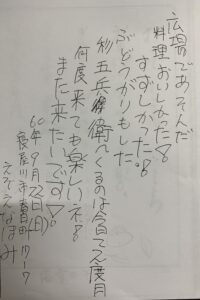 広場であそんだ
料理おいしかった!!
すずしかった。!!
ぶどうがりもした
杉五兵衛へくるのは今日で2度目
何度来ても楽しいネ!!
また来たいです!!
60年9月22日(日)
寝屋川市